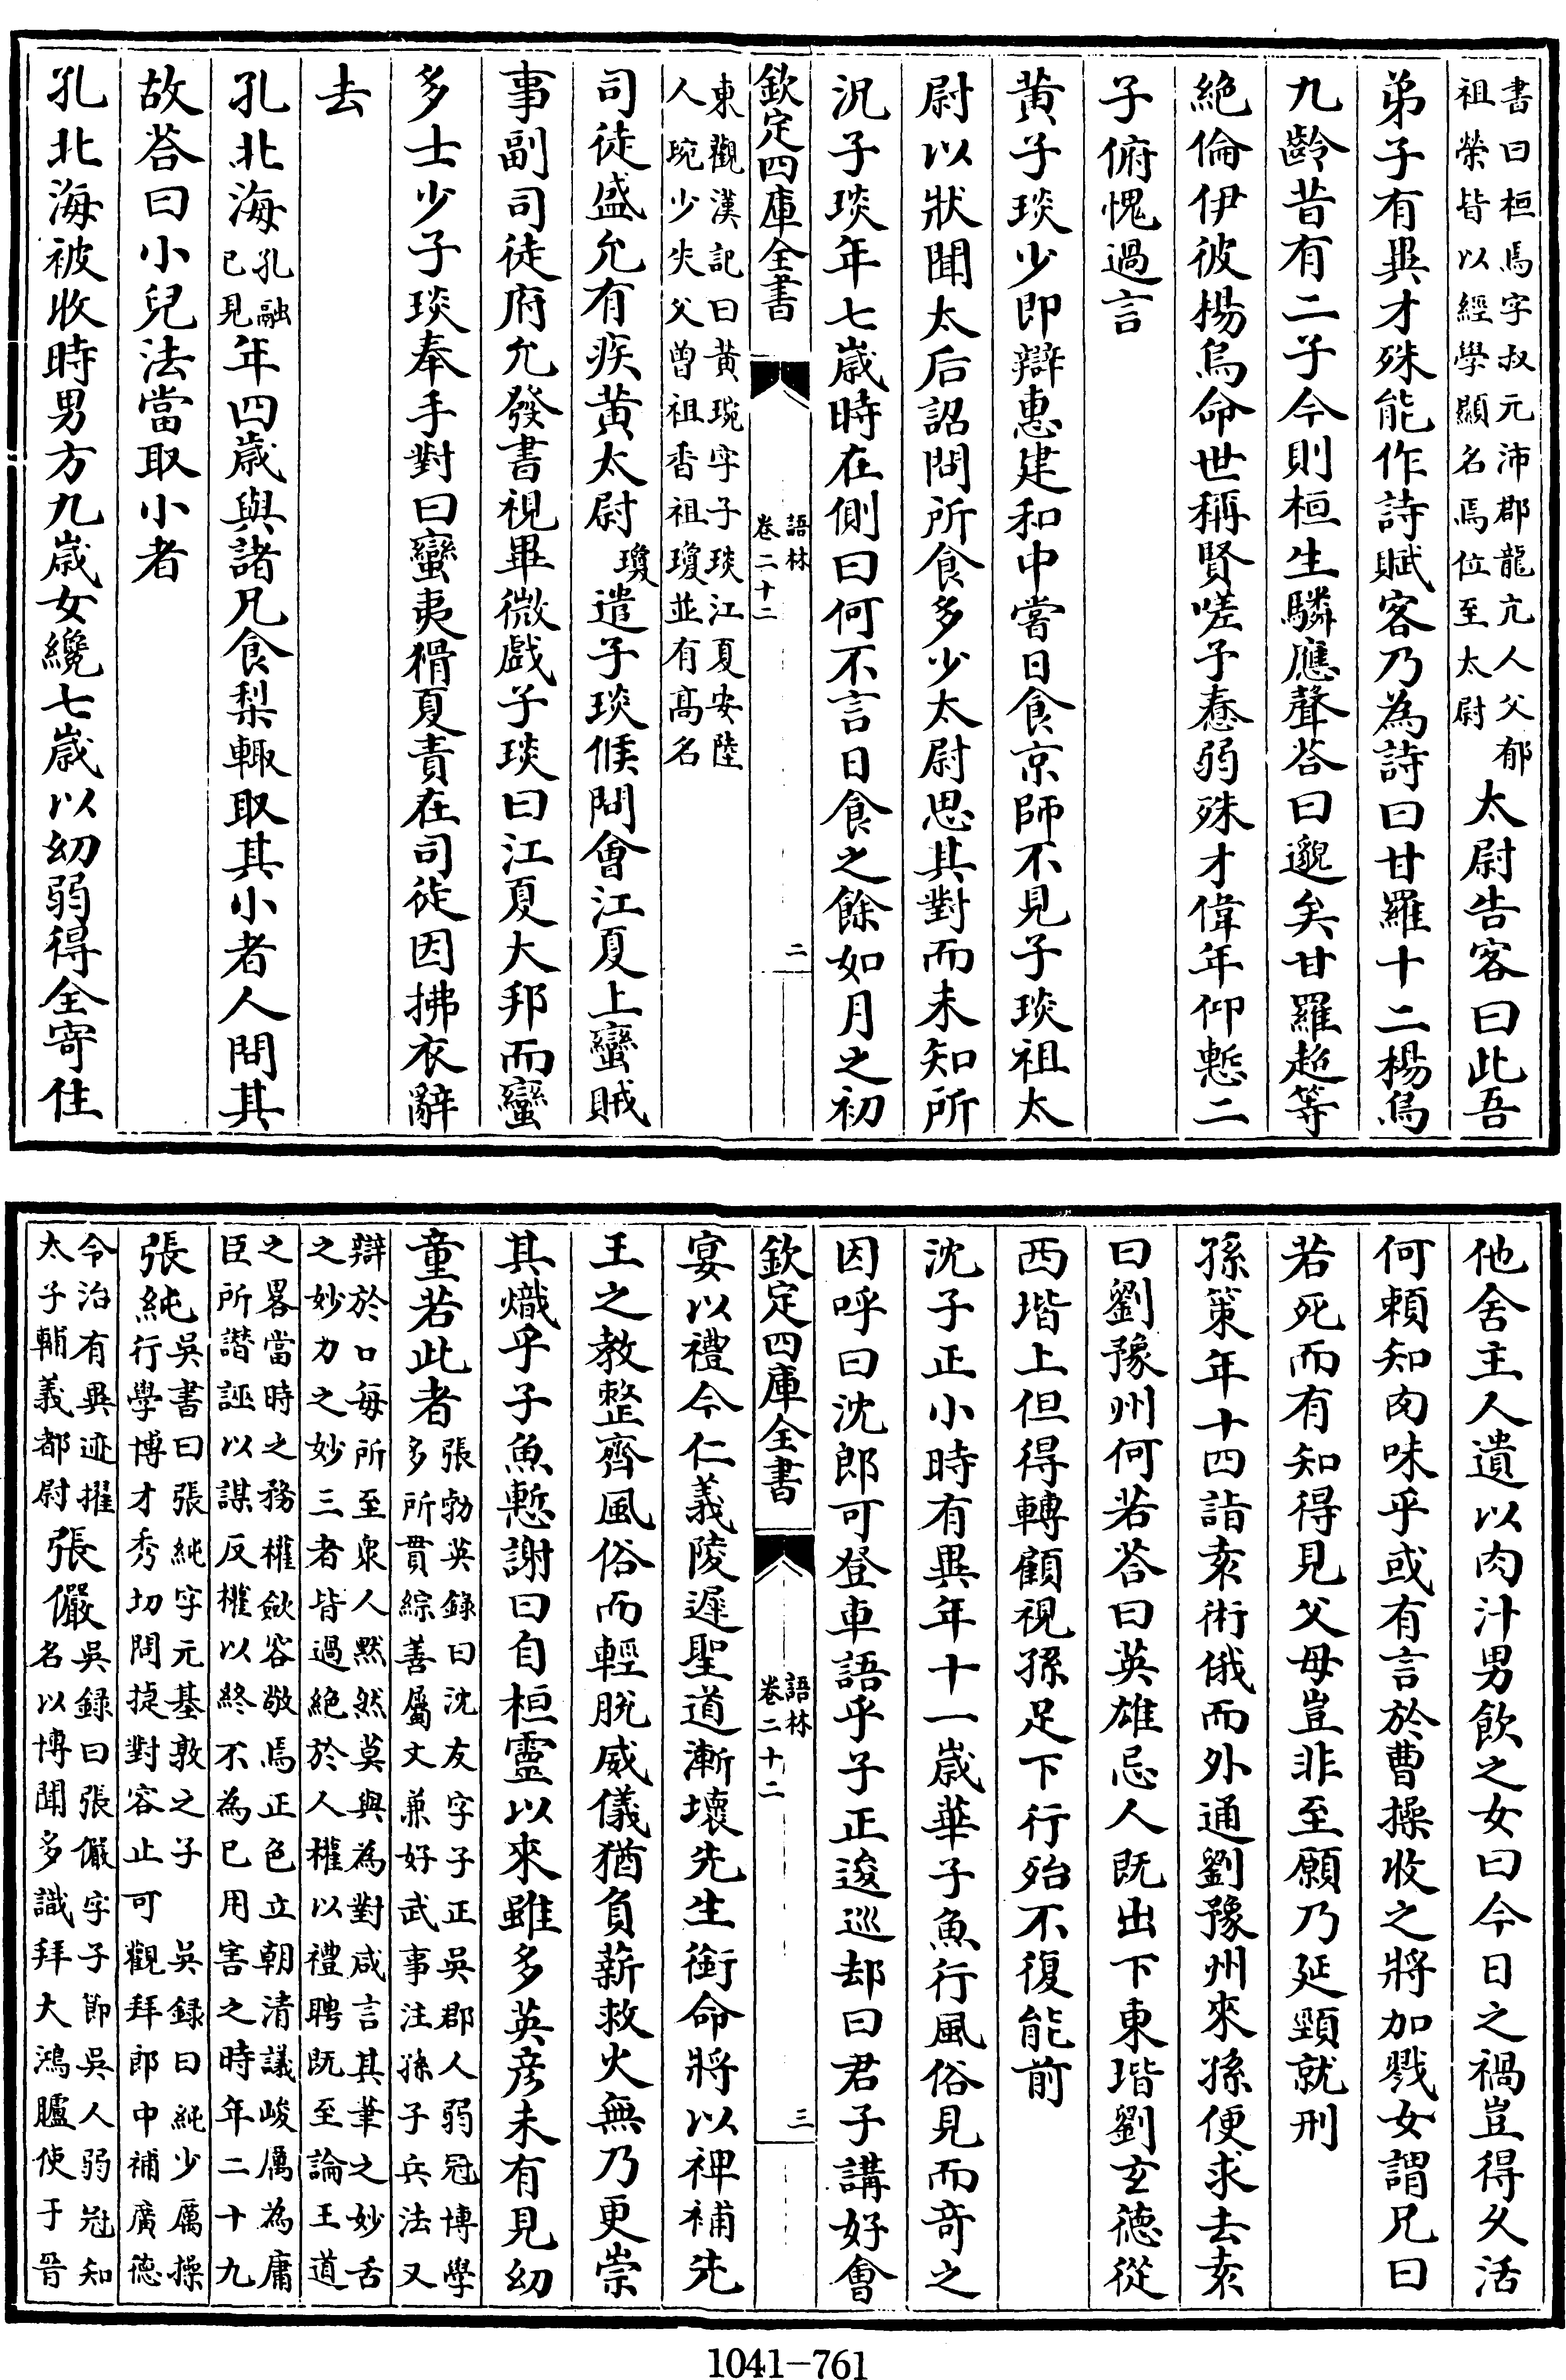 書曰桓焉字叔元沛郡龍亢人父郁
祖榮皆以經學顯名焉位至太尉
太尉告客曰此吾
弟子有異才殊能作詩賦客乃為詩曰甘羅十二楊烏
九齡昔有二子今則桓生驎應聲荅曰邈矣甘羅超等
絶倫伊彼楊烏命世稱賢嗟予惷弱殊才偉年仰慙二
子俯愧過言
黄子琰少即辯惠建和中嘗日食京師不見子琰祖太
尉以狀聞太后詔問所食多少太尉思其對而未知所
況子琰年七歳時在側曰何不言日食之餘如月之初
欽定四庫全書
語林
卷二十二
二
東觀漢記曰黄琬字子琰江夏安陸
人琬少失父曽祖香祖瓊並有髙名
司徒盛允有疾黄太尉瓊遣子琰候問㑹江夏上蠻賊
事副司徒府允發書視畢微戯子琰曰江夏大邦而蠻
多士少子琰奉手對曰蠻夷猾夏責在司徒因拂衣辭
去
孔北海
孔融
已見
年四歳與諸兄食梨輙取其小者人問其
故荅曰小兒法當取小者
孔北海被收時男方九歳女纔七歳以幼弱得全寄住
他舎主人遺以肉汁男飲之女曰今日之禍豈得久活
何頼知肉味乎或有言於曹操收之將加戮女謂兄曰
若死而有知得見父母豈非至願乃延頸就刑
孫策年十四詣袁術俄而外通劉豫州來孫便求去袁
曰劉豫州何若荅曰英雄忌人既出下東堦劉玄徳從
西堦上但得轉顧視孫足下行殆不復能前
沈子正小時有異年十一歳華子魚行風俗見而竒之
因呼曰沈郎可登車語乎子正逡巡却曰君子講好㑹
欽定四庫全書
語林
卷二十二
三
宴以禮今仁義陵遲聖道漸壊先生銜命將以裨補先
王之教整齊風俗而輕脱威儀猶負薪救火無乃更崇
其熾乎子魚慙謝曰自桓靈以來雖多英彦未有見幼
童若此者
張勃英録曰沈友字子正吳郡人弱冠博學
多所貫綜善屬文兼好武事注孫子兵法又
辯於口每所至衆人黙然莫與為對咸言其筆之妙舌
之妙力之妙三者皆過絶於人權以禮聘既至論王道
之畧當時之務權斂容敬焉正色立朝清議峻厲為庸
臣所譖誣以謀反權以終不為已用害之時年二十九
張純
吳書曰張純字元基敦之子
吳録曰純少厲操
行學博才秀切問捷對容止可觀拜郎中補廣徳
令治有異迹擢
太子輔義都尉
張儼
吳録曰張儼字子節吳人弱冠知
名以博聞多識拜大鴻臚使于晉
1041-761